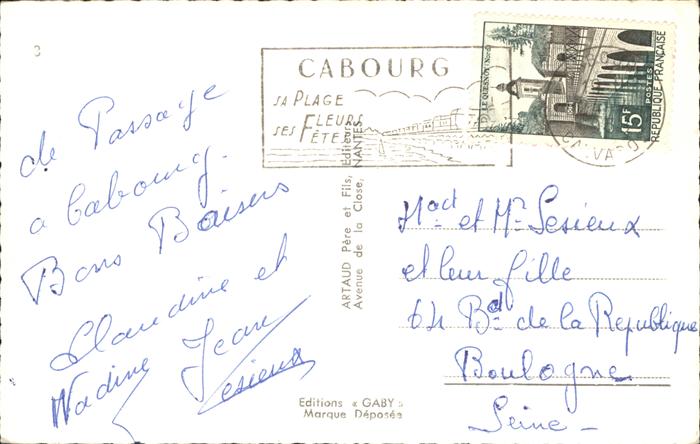 3
de Passage
a Cabourg.
Bons Baisers
Claudine et
Nadine Jean
Lesieux
CABOURG
SA PLAGE
SES FLEURS
FÊTES
LE QUESNOY (Nord)
15F
POSTES
REPUBLIQUE FRANÇAISE
CALVADOS
ARTAUD Père et Fils, Editeurs
Avenue de la Close, NANTES
Editions « GABY »
Marque Déposée
et Mr Lesieux
et leur fille
64 Bd de la Republique
Boulogne
Seine